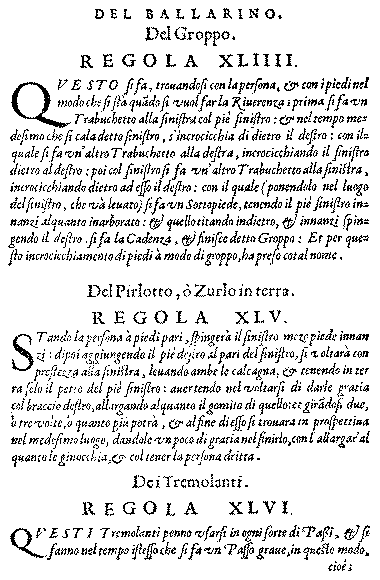 DEL BALLARINO.
Del Groppo.
REGOLA XLIIII.
QVESTO si fa, trouandosi con la persona, & con i piedi nel
modo che si stà quãdo si vuol far la Riuerenza: prima si fa vn
Trabuchetto alla sinistra col piè sinistro: & nel tempo me-
desimo che si cala detto sinistro, s'incrocicchia di dietro il destro: con il-
quale si fa vn'altro Trabuchetto alla destra, incrocicchiando il sinistro
dietro al destro: poi col sinistro si fa vn'altro Trabuchetto alla sinistra,
incrocicchiando dietro ad esso il destro: con il quale (ponendolo nel luogo
del sinistro, che và leuato) si fa vn Sottopiede, tenendo il piè sinistro in-
nanzi alquanto inarborato: & quello tirando indietro, & innanzi spin-
gendo il destro si fa la Cadenza, & finisce detto Groppo: Et per que-
sto incrocicchiamento di piedi à modo di groppo, ha preso cotal nome.
Del Pirlotto, ò Zurlo in terra.
REGOLA XLV.
STando la persona à piedi pari, spingerà il sinistro mezo piede innan-
zi: dipoi aggiungendo il piè destro al pari del sinistro, si voltarà con
prestezza alla sinistra, leuando ambe le calcagna, & tenendo in ter
ra solo il petto del piè sinistro: auertendo nel voltarsi di darle gratia
col braccio destro, allargando alquanto il gomito di quello: et girãdosi due,
ò tre volte, ò quanto più potrà, & al fine di esso si trouara in prospettiua
nel medesimo luogo, dandole vn poco di gratia nel finirlo, con l'allargar al
quanto le ginocchia, & col tener la persona dritta.
Dei Tremolanti.
REGOLA XLVI.
QVESTI Tremolanti ponno vsarsi in ogni sorte di Passi, & si
fanno nel tempo istesso che si fa vn Passo graue, in questo modo,
cioè;